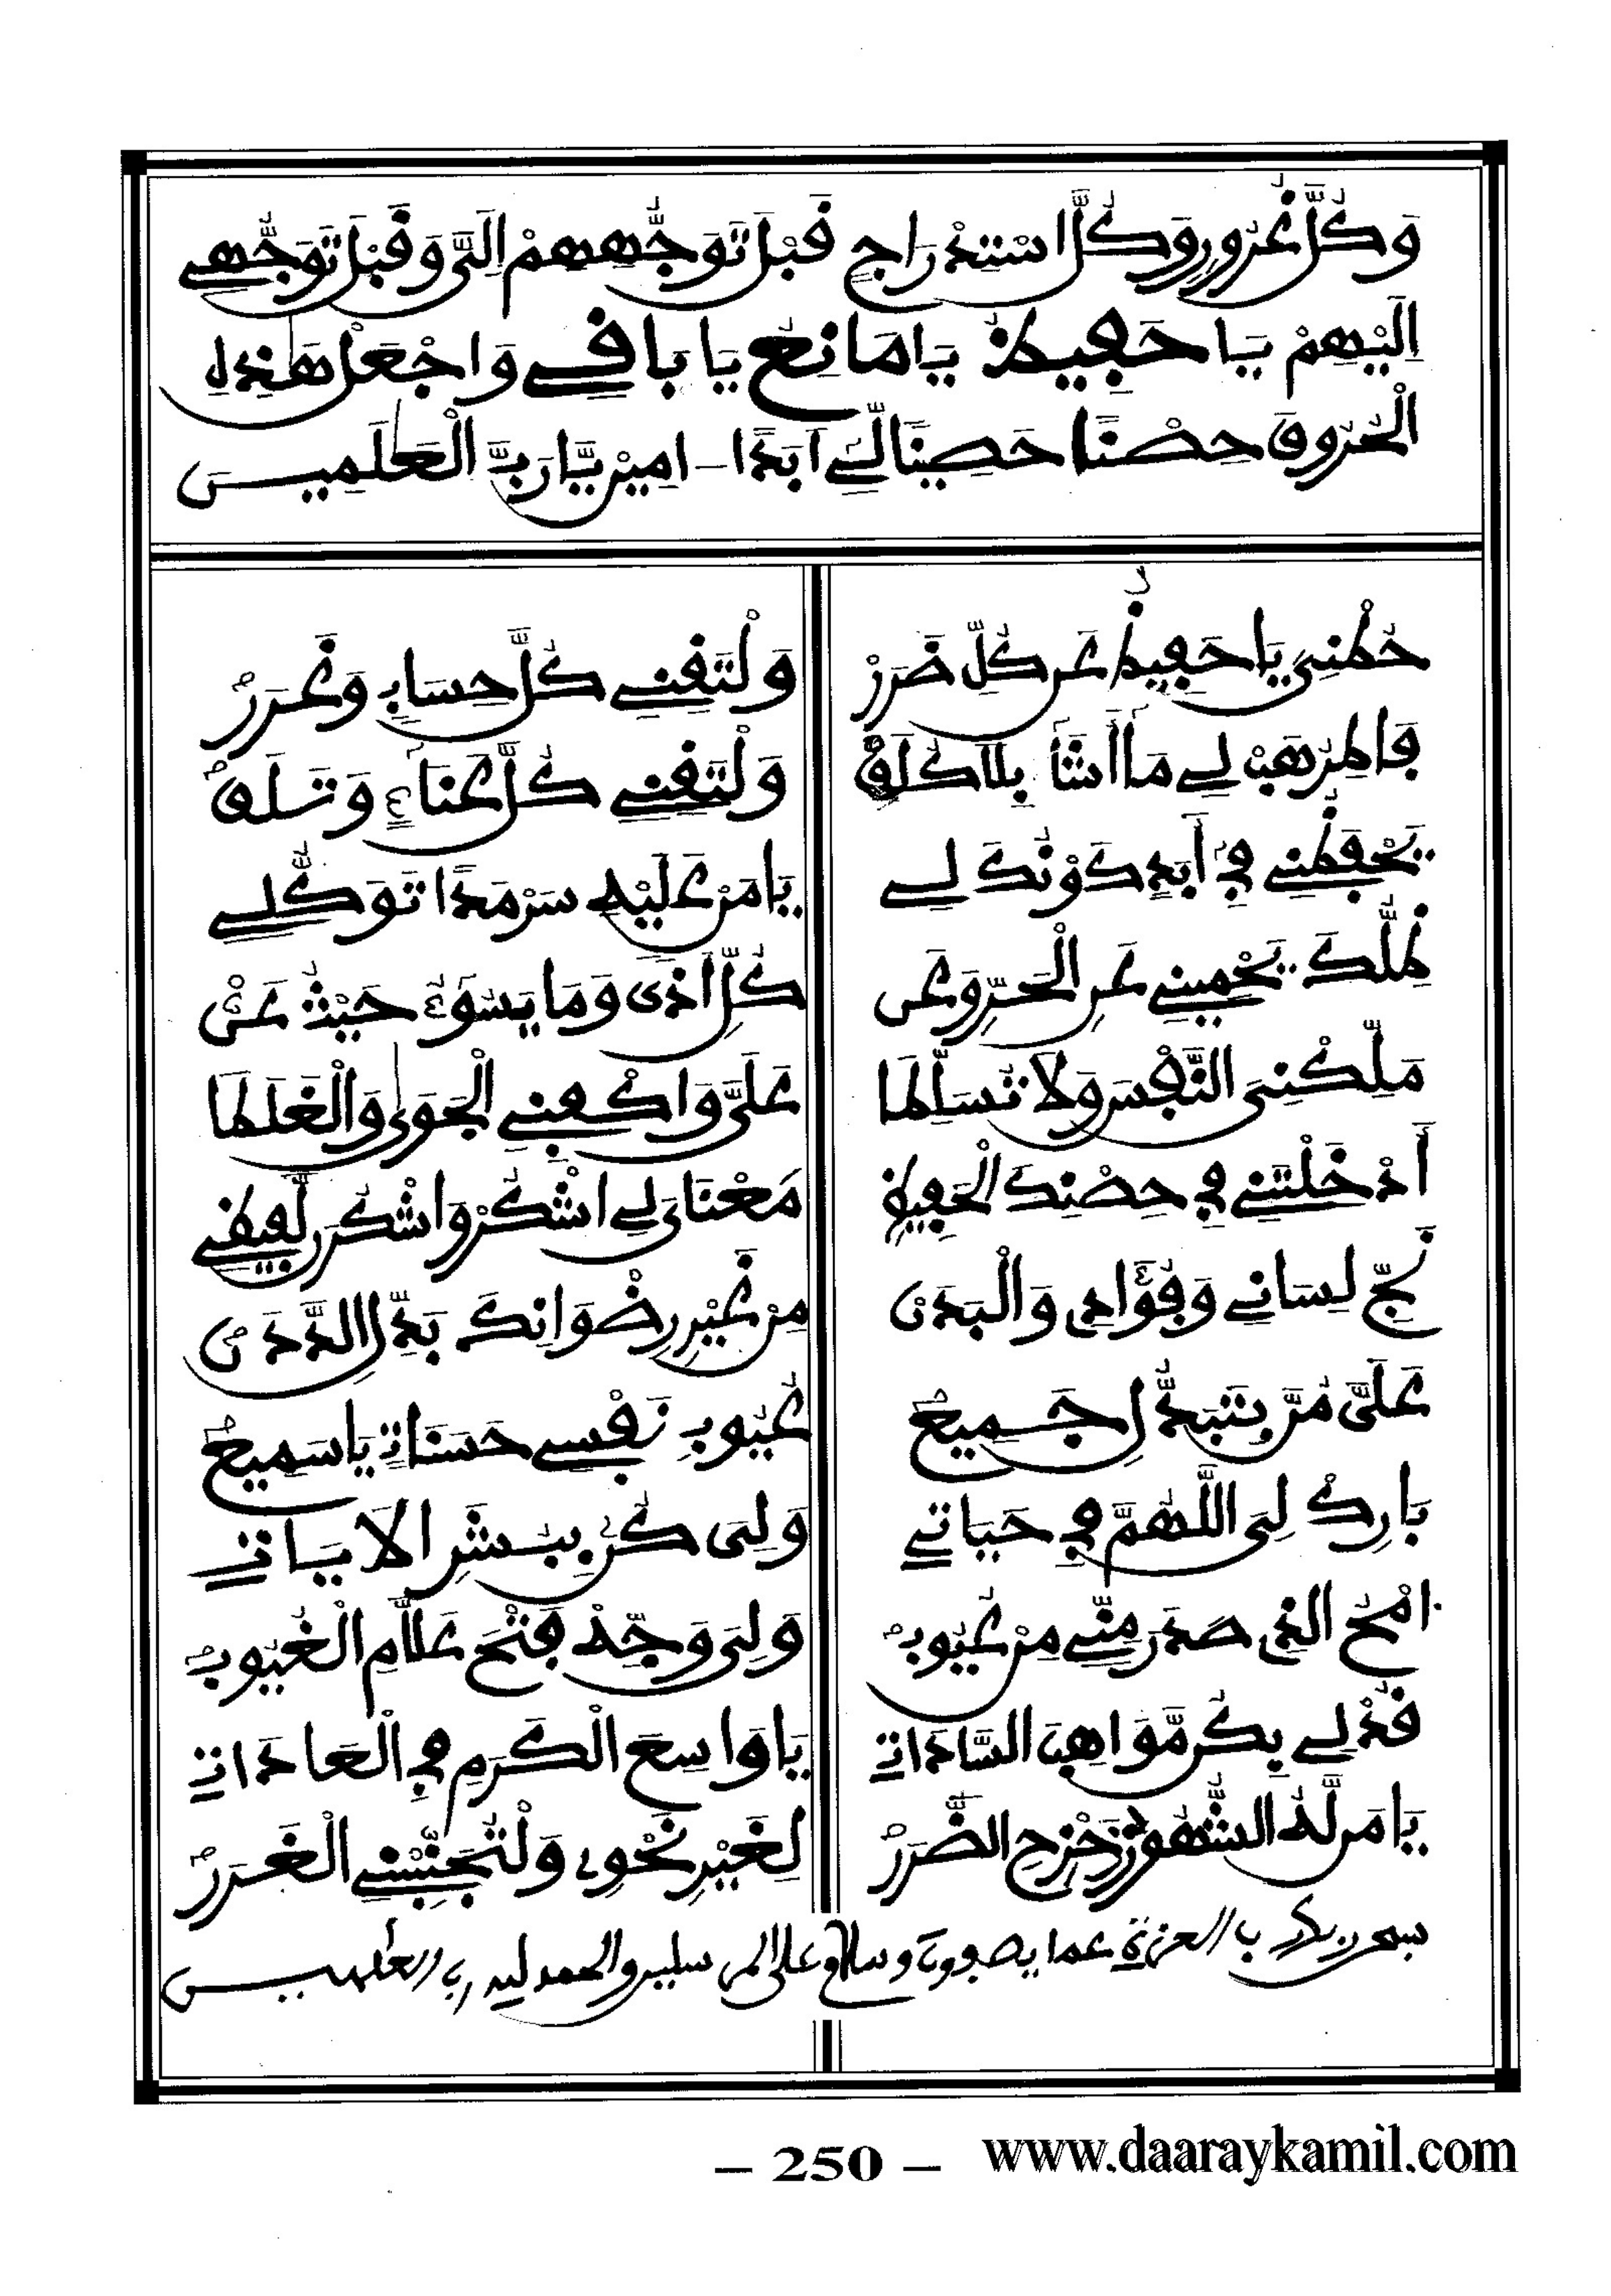 وَكُلَّ غُرُورٍ وَكُلَّ اسْتِدْرَاجٍ قَبْلَ تَوَجُّهِهِمْ إِلَيَّ وَقَبْلَ تَوَجُّهِي
إِلَيْهِمْ يَا حَفِيظُ يَا مَانِعُ يَا بَاقِي وَاجْعَلْ هَذِهِ
الْحُرُوفَ حِصْنًا حَصِينًا لِّي أَبَدًا - امِين يَّا رَبَّ الْعَلَمِينَ
حُطْنِي يَا حَفِيظُ عَن كُلِّ ضَرَرْ وَلْتَقِنِي كُلَّ حِسَابٍ وَغَرَرْ
فَاطِرُ هَبْ لِي مَا أَشَا بِلَا كَلَفْ وَلْتَقِنِي كُلَّ عَنَاءٍ وَتَلَفْ
يَحْفَظُنِي فِي أَبَدٍ كَوْنُكَ لِي يَا مَنْ عَلَيْهِ سَرْمَدًا تَوَكُّلِي
ظِلُّكَ يَحْمِينِي عَنِ الْحَرِّ وَعَن كُلِّ أَذًى وَمَا يَسُوءُ حَيْثُ عَنْ
مَلِّكْنِيَ النَّفْسَ وَلَا تُسَلِّطَا عَلَيَّ وَاكْفِنِي الْجَوَى وَالْغَلَطَا
أَدْخَلْتَنِي فِي حِصْنِكَ الْحَفِيظِ مَعْنَايَ لِي اشْكُرْ وَاشْكُرَن لَّفِيظِي
نَجِّ لِسَانِي وَفُؤَادِي وَالْبَدَنْ مِنْ غَيْرِ رِضْوَانِكَ بَدِّلِ الدَّدَنْ
عَلَيَّ مُنَّ بِتَبَدُّلِ جَمِيعْ عُيُوبِ نَفْسِي حَسَنَاتٍ يَا سَمِيعْ
بَارِكْ لِيَ اللَّهُمَّ فِي حَيَاتِي وَلِيَ كُن بِبَشَرِ الْآيَاتِ
امْحُ الذِي صَدَرَ مِنِّي مِنْ عُيُوبْ وَلِيَ وَجِّدْ فَتْحَ عَلَّامِ الْغُيُوبْ
قُدْ لِي بِكُن مَّوَاهِبَ السَّادَاتِ يَا وَاسِعَ الْكَرَمِ فِي الْعَادَاتِ
يَا مَن لَهُ الشُّهُورُ زَحْزِحِ الضَّرَرْ لِغَيْرِ نَحْوِي وَلْتُجَنِّبْنِي الْغَرَرْ
سبحن ربك رب العزة عما يصفون وسلام على المرسلين والحمد لله رب العلمين
- 250 - www.daaraykamil.com